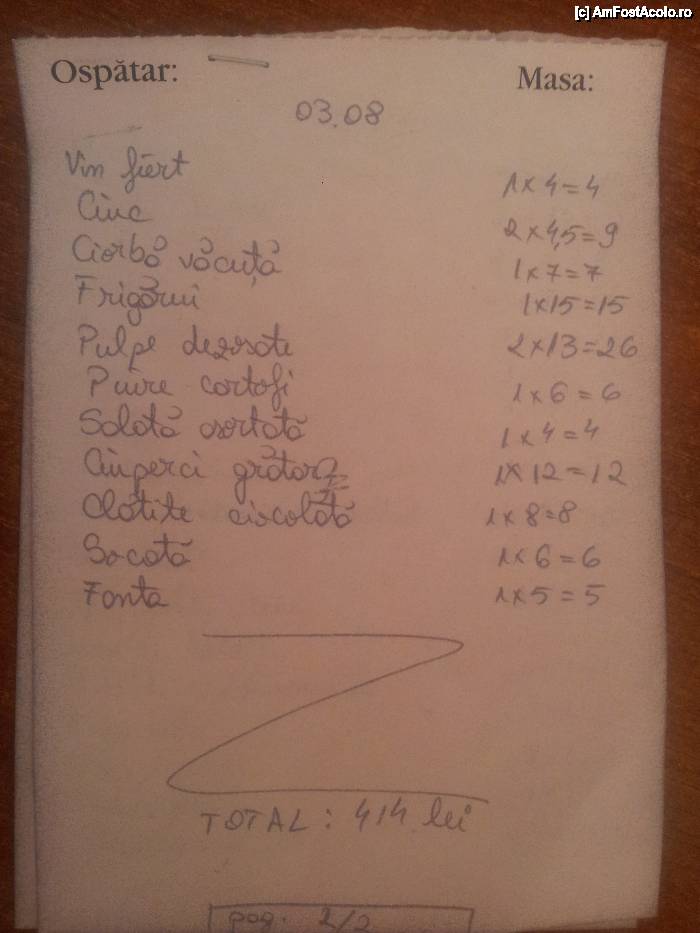 [c] AmFostAcolo.ro
Ospătar: Masa:
03.08
Vin fiert 1x4=4
Ciuc 2x4,5=9
Ciorbă văcuță 1x7=7
Frigărui 1x15=15
Pulpe dezosate 2x13=26
Piure cartofi 1x6=6
Salată asortată 1x4=4
Ciuperci grătar 1x12=12
Clătite ciocolată 1x8=8
Socată 1x6=6
Fanta 1x5=5
TOTAL: 414 lei
pag. 2/2